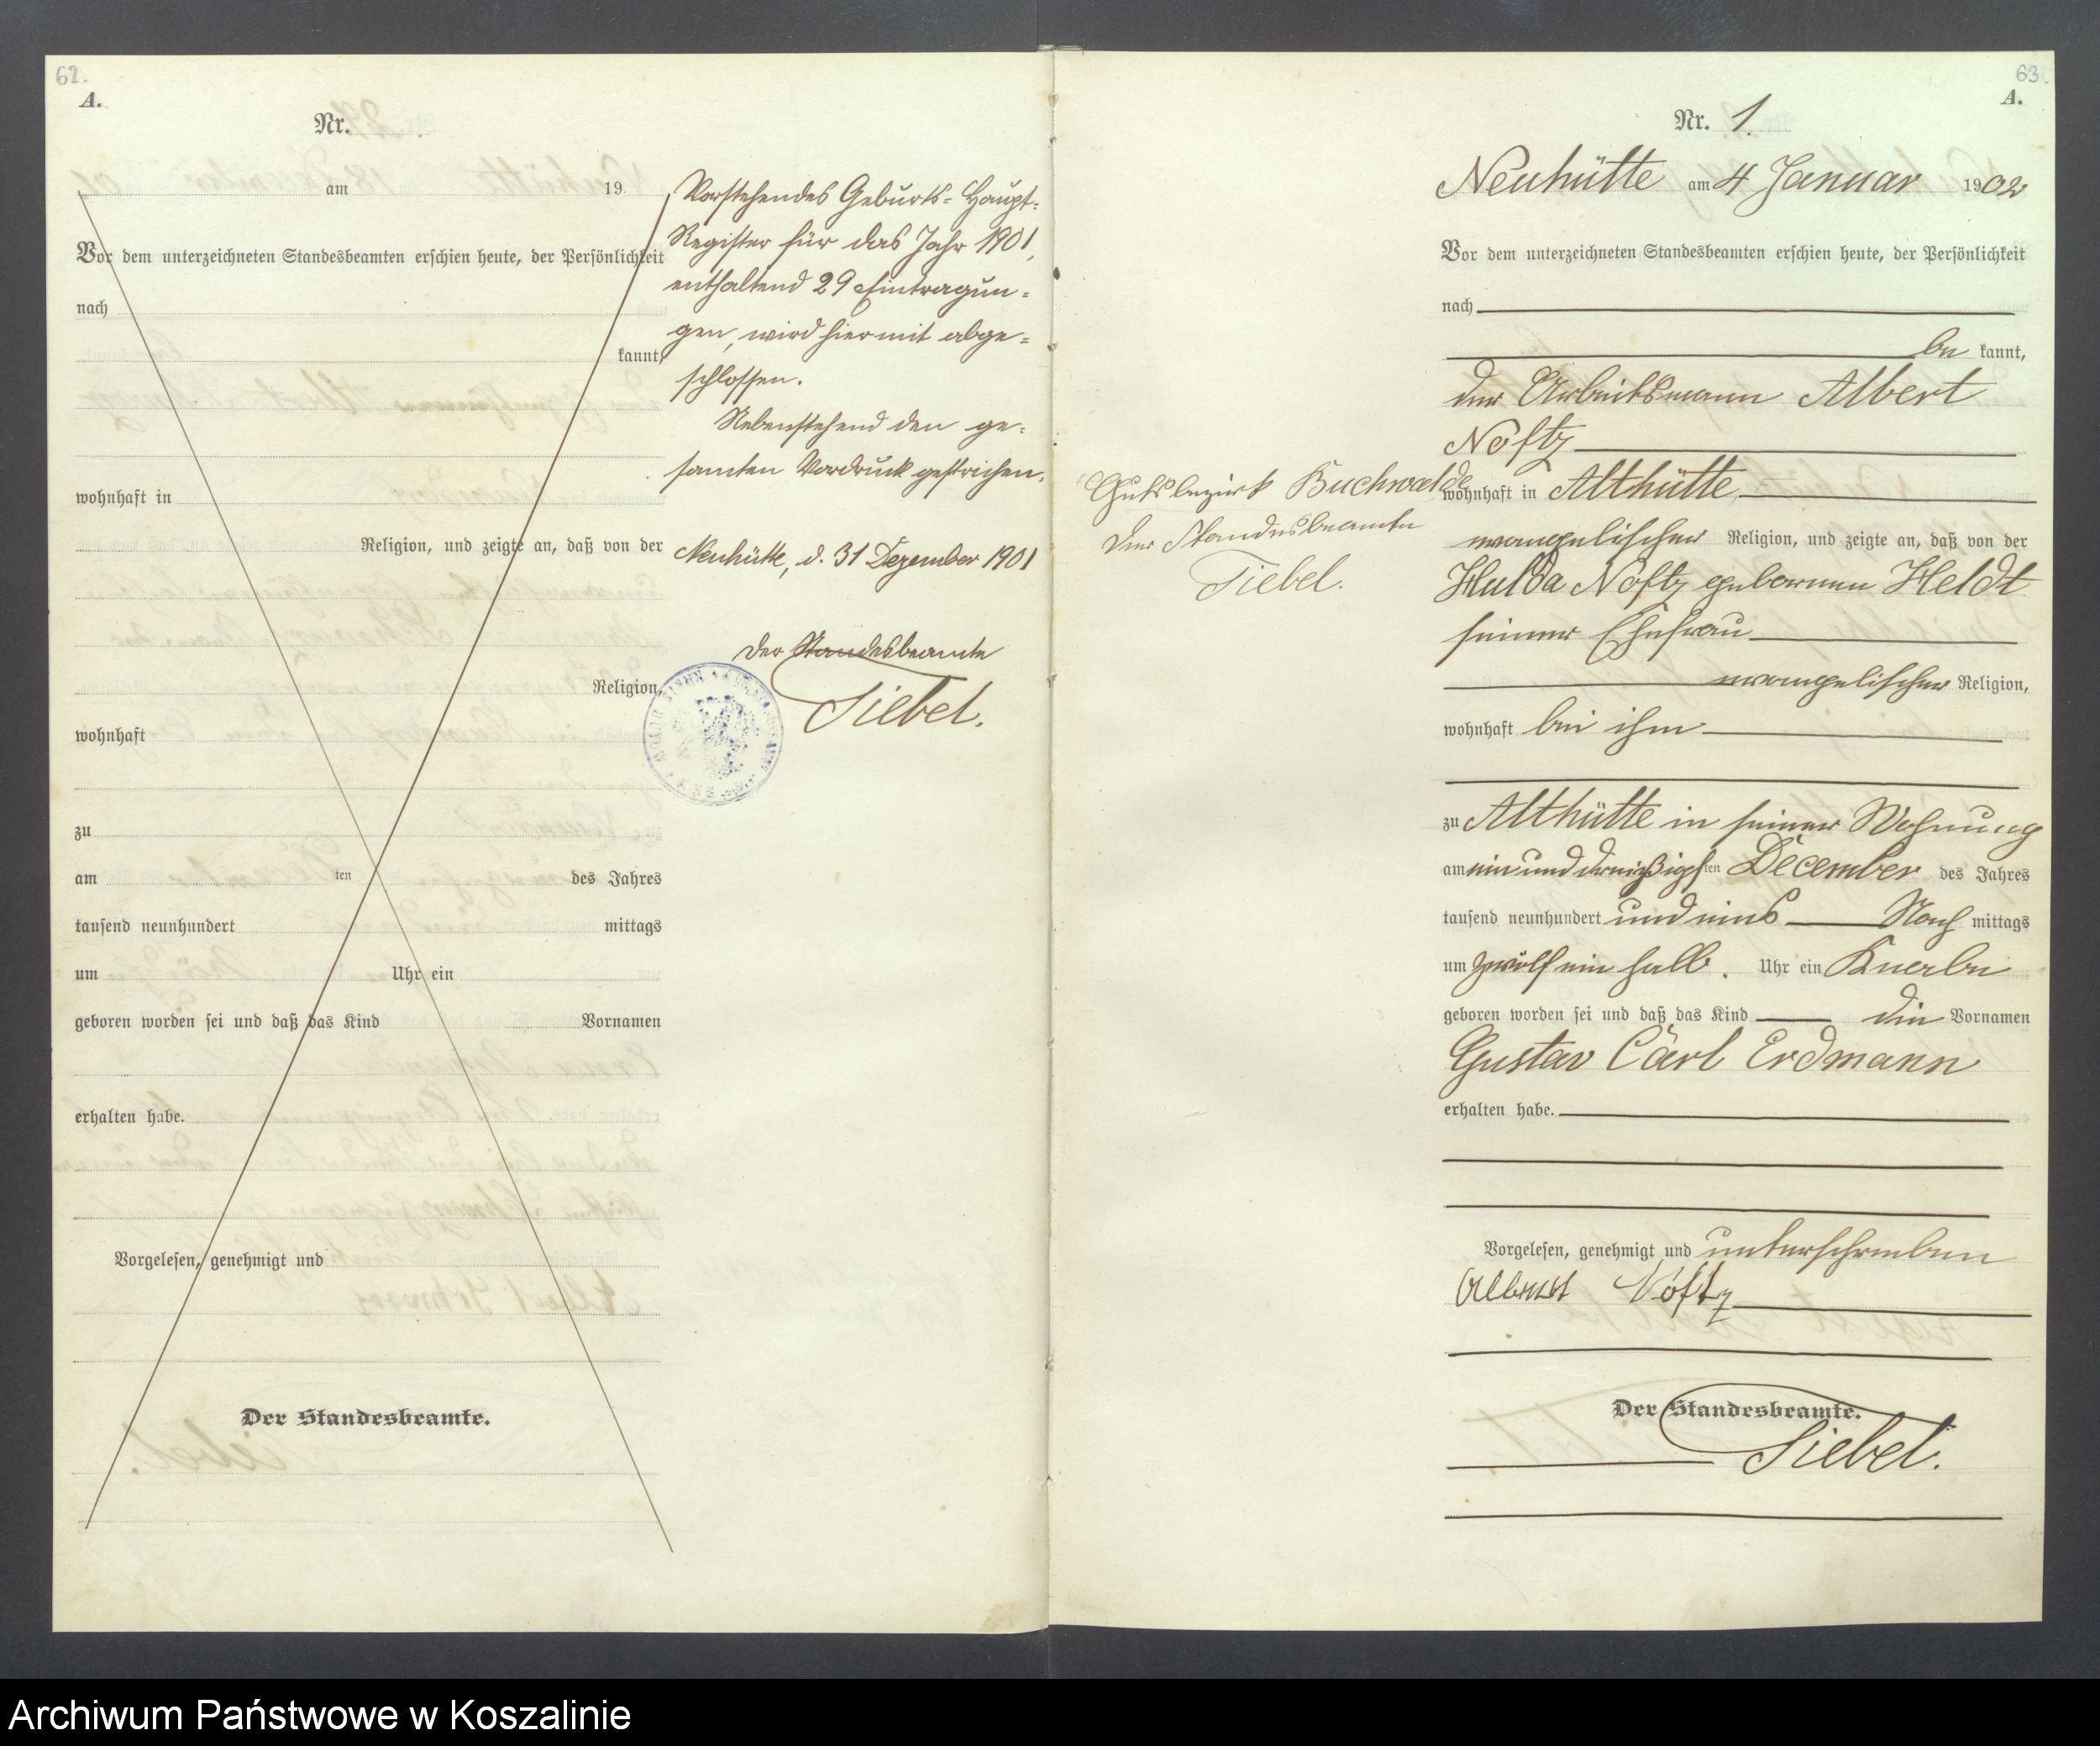 62.
A.
Nr.
am 19
Vor dem unterzeichneten Standesbeamten erschien heute, der Persönlichkeit
nach
kannt,
wohnhaft in
Religion, und zeigte an, daß von der
Religion,
wohnhaft
zu
am ten des Jahres
tausend neunhundert mittags
um Uhr ein
geboren worden sei und daß das Kind Vornamen
erhalten habe.
Vorgelesen, genehmigt und
Der Standesbeamte.
Vorstehendes Geburts-Haupt-
Register für das Jahr 1901,
enthaltend 29 Eintragun-
gen, wird hiermit abge-
schlossen.
Nebenstehend den ge-
samten Vordruck gestrichen.
Neuhütte, d. 31 Dezember 1901
Der Standesbeamte
Siebel.
63.
A.
Nr. 1.
Neuhütte am 4 Januar 1902
Vor dem unterzeichneten Standesbeamten erschien heute, der Persönlichkeit
nach
be kannt,
der Arbeitsmann Albert
Noftz
wohnhaft in Althütte
evangelischer Religion, und zeigte an, daß von der
Hulda Noftz geborenen Heldt
seiner Ehefrau
evangelischer Religion,
wohnhaft bei ihm
zu Althütte in seiner Wohnung
am einunddreißigsten December des Jahres
tausend neunhundert und eins Nach mittags
um zwölf ein halb. Uhr ein Knabe
geboren worden sei und daß das Kind die Vornamen
Gustav Carl Erdmann
erhalten habe.
Vorgelesen, genehmigt und unterschrieben
Albert Noftz
Der Standesbeamte.
Siebel.
Gutsbezirk Buchwalde
Der Standesbeamte
Siebel.
Archiwum Państwowe w Koszalinie